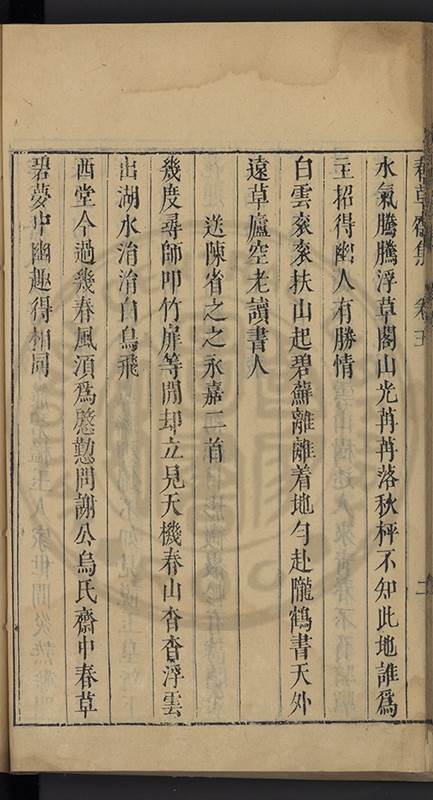 春草齋集 卷五 二
水氣騰騰浮草閣山光冉冉落秋枰不知此地誰爲
主招得幽人有勝情
白雲衮衮扶山起碧蘚離離着地勻赴隴鶴書天外
遠草廬空老讀書人
送陳省之之永嘉二首
幾度尋師叩竹扉等閒却立見天機春山杳杳浮雲
出湖水冶冶白鳥飛
西堂今過幾春風湏爲慇懃問謝公烏氏齋中春草
碧夢中幽趣得相同